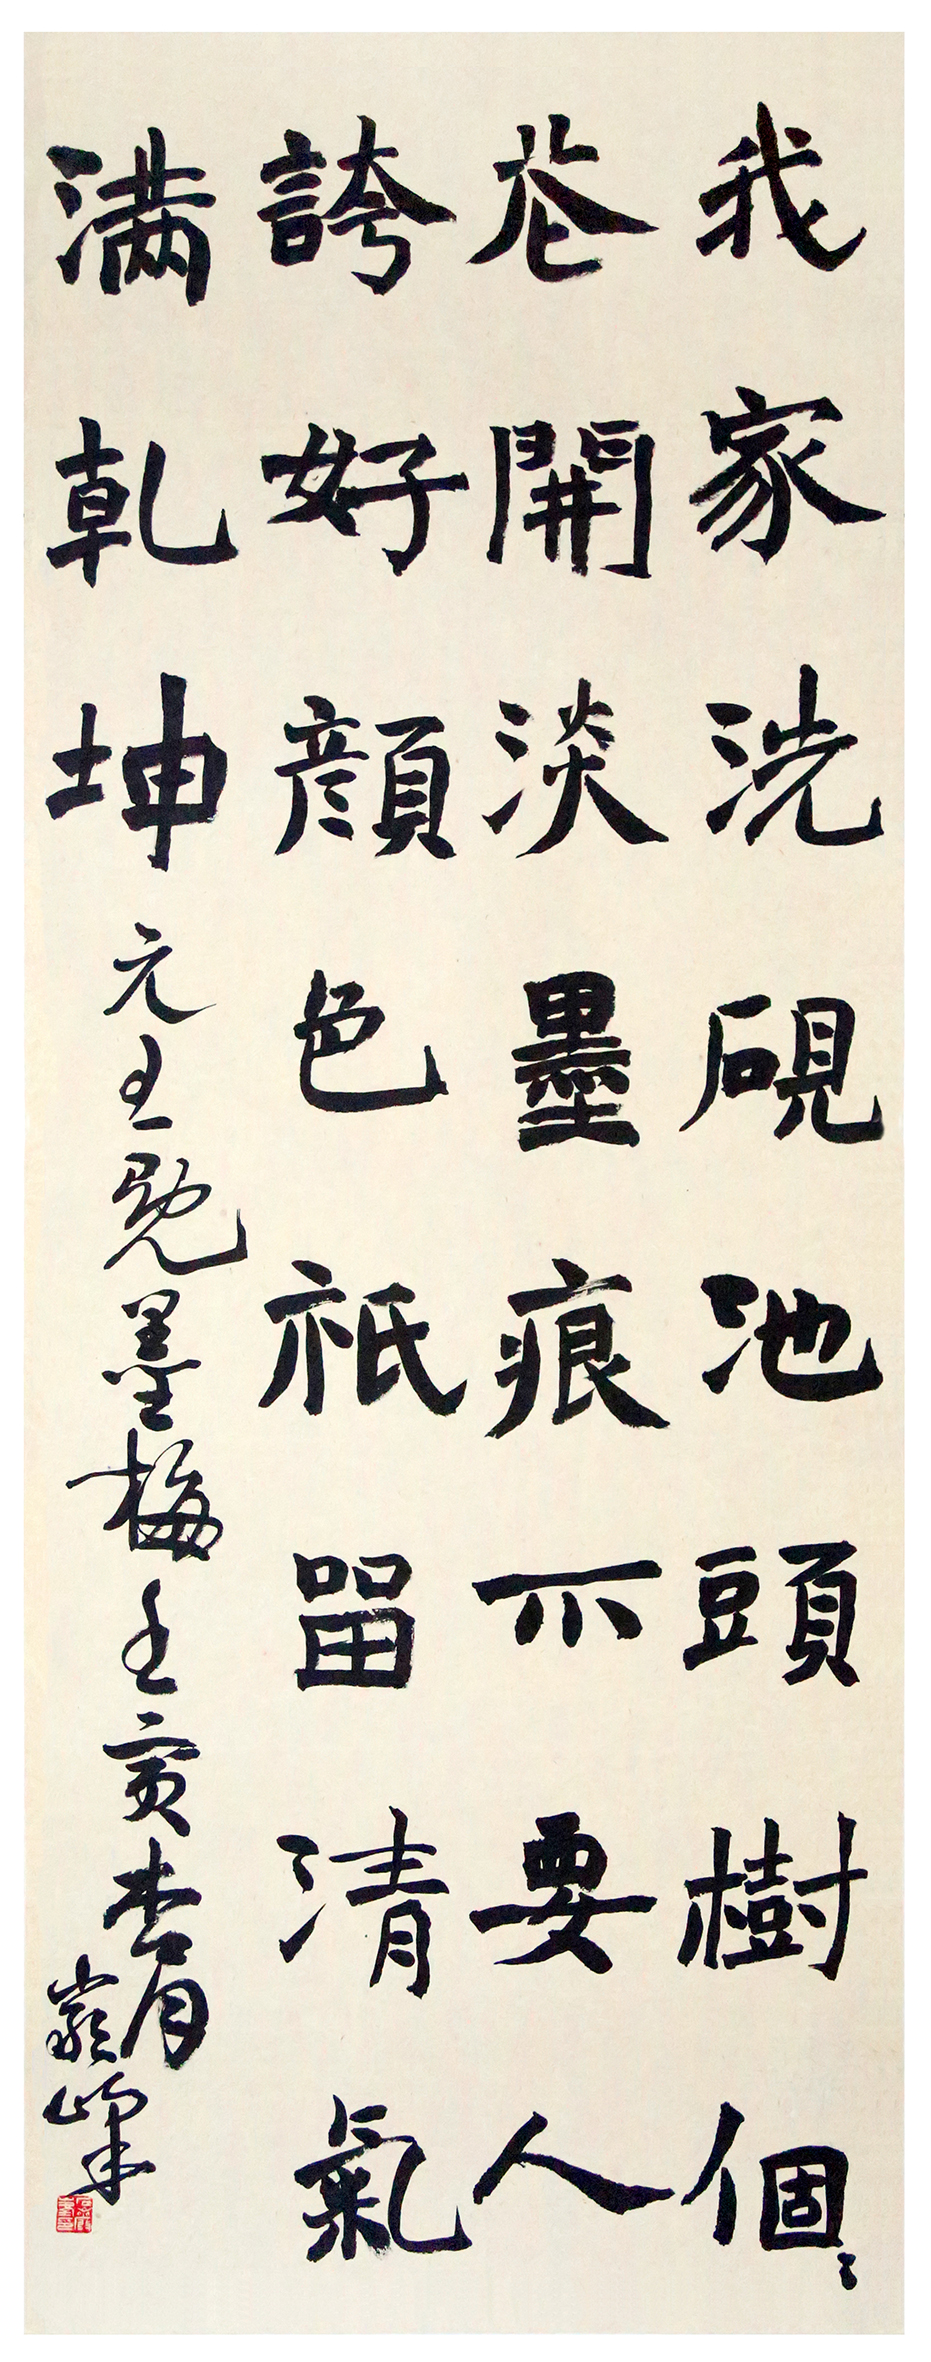 我家洗硯池頭樹個〻
花開淡墨痕不要人
誇好顔色祇留清氣
满乾坤 元王冕墨梅壬寅杏月